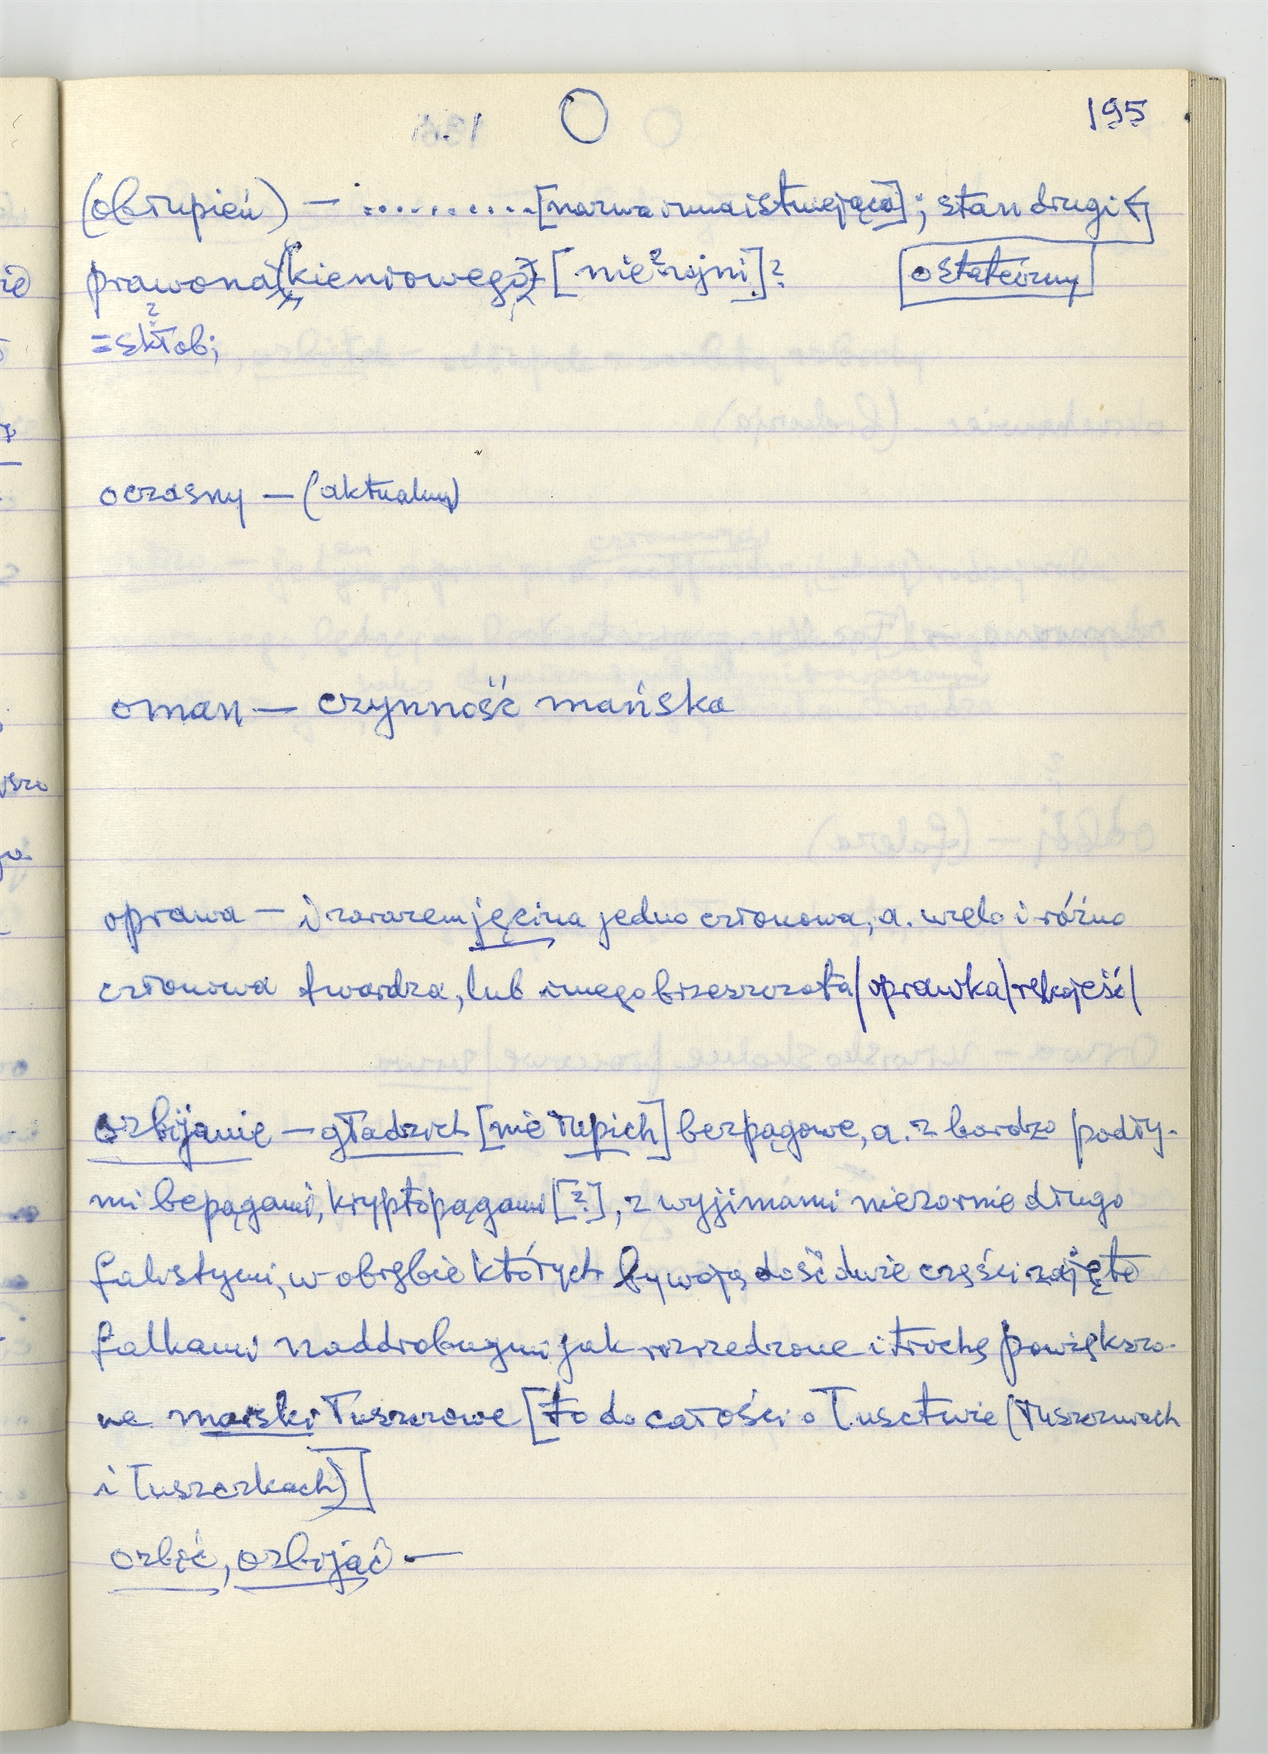 O 195
(obłupień) — ..........[nazwa inna istniejąca]; stan drugi
prawona(kieniowego) [nie żujni]? ostateczny
?
= skłobi
oczasny — (aktualny)
oman — czynność mańska
oprawa — i zarazem jęcina jedno członowa, a. wielo i różno
członowa twardza, lub innego brzeszczota /oprawka/rękojeść/
ozbijanie — gładzich [nie łupich] bezpągowe, a. z bardzo podły-
mi bepągami, kryptopągami [?], z wyjimami niezornie długo
falistymi, w obrębie których bywają dość duże części zajęte
falkami naddrobnymi jak rozrzedzone i trochę powiększo-
ne maiski łuszczowe [to do całości o łusctwie (łuszczniach
i łuszczkach)]
ozbić, ozbijać —